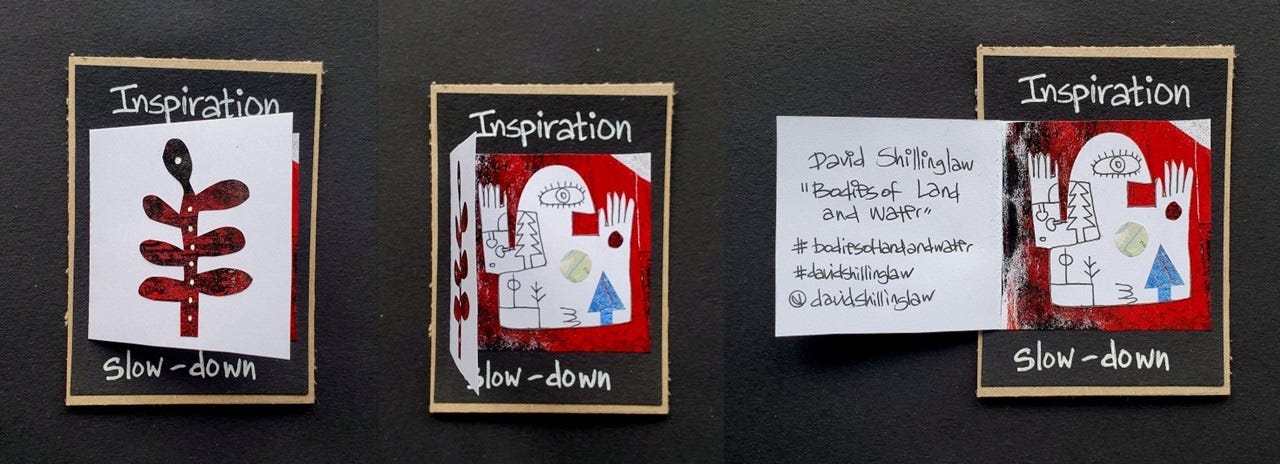 Inspiration
Slow-down
Inspiration
Slow-down
Inspiration
David Shillinglaw
"Bodies of Land
and Water"
#bodiesoflandandwater
#davidshillinglaw
@davidshillinglaw
Slow-down